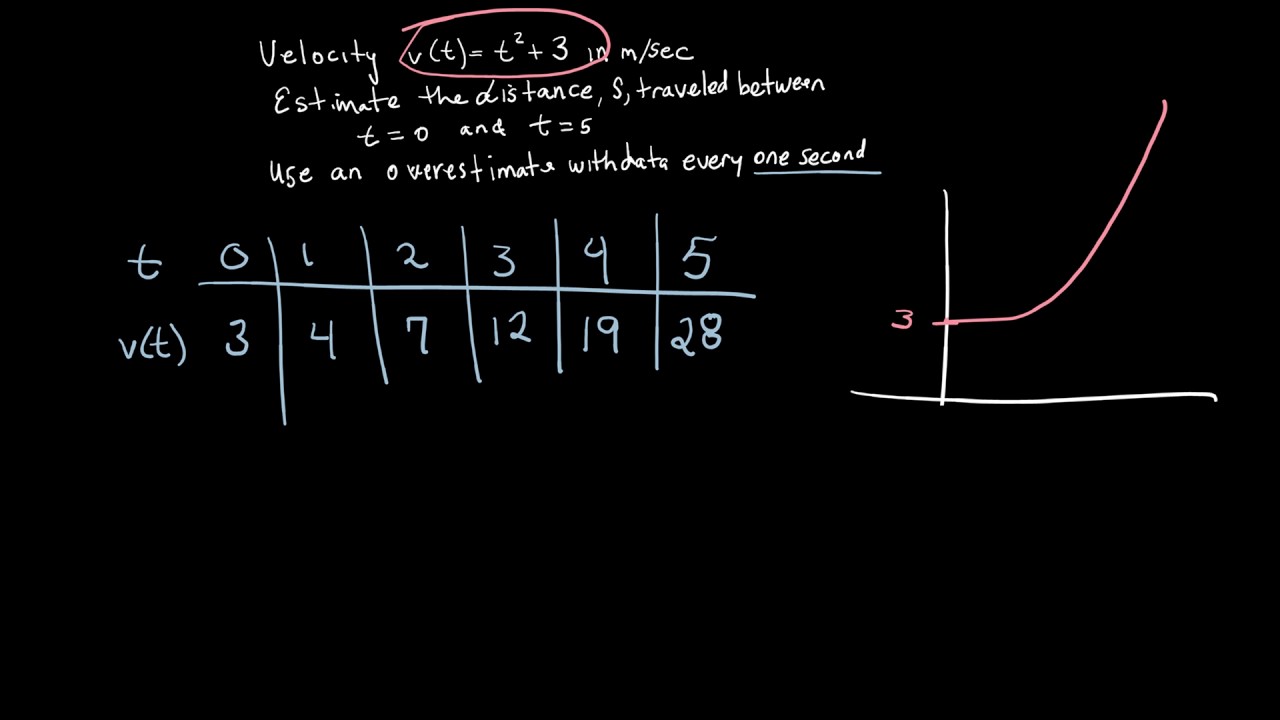 Velocity v(t) = t² + 3 in m/sec
Estimate the distance, S, traveled between
t = 0 and t = 5
Use an overestimate with data every one second
t 0 1 2 3 4 5
v(t) 3 4 7 12 19 28
3